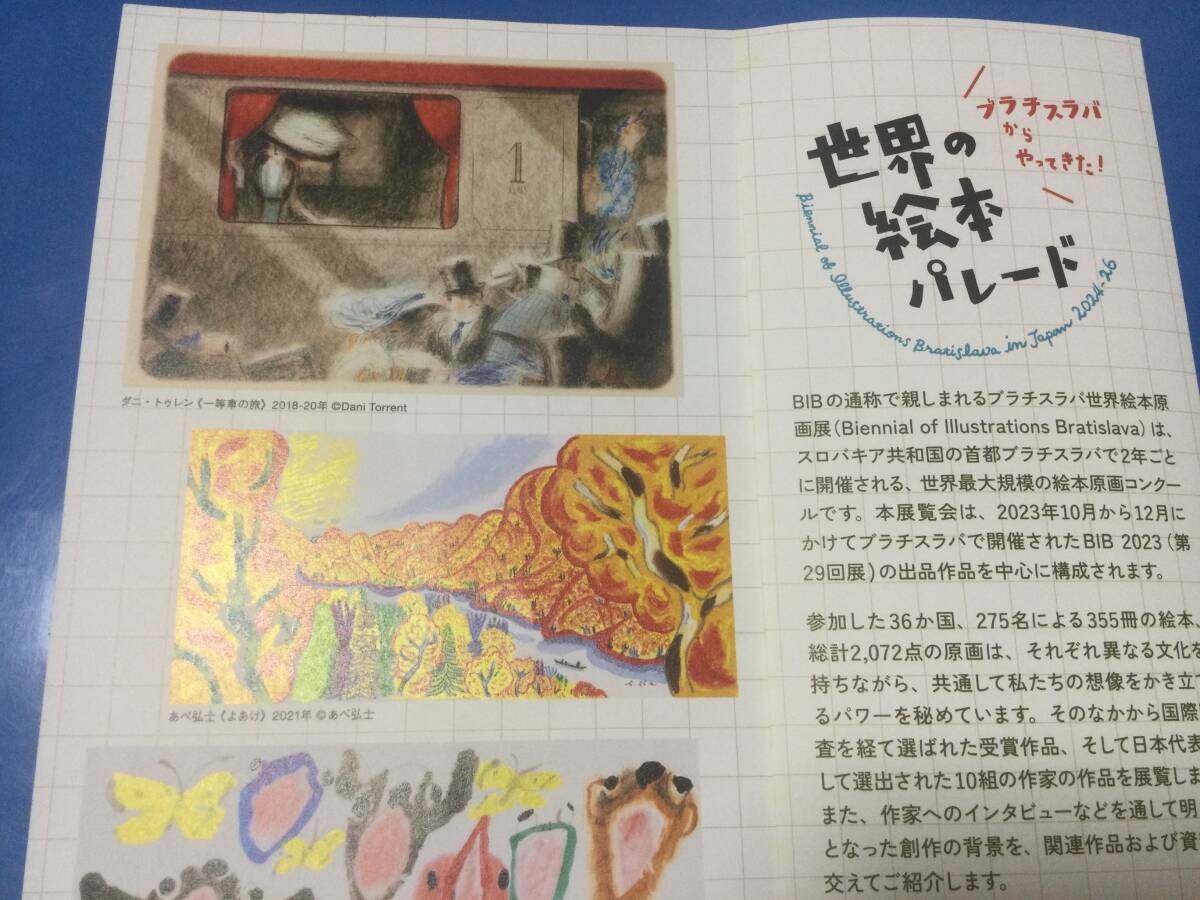 1
ダニ・トゥレン《一等車の旅》2018-20年 ©Dani Torrent
あべ弘士《よあけ》2021年 ©あべ弘士
ブラチスラバ
から
やってきた!
世界の
絵本
パレード
Biennial of Illustrations Bratislava in Japan 2024-26
BIBの通称で親しまれるブラチスラバ世界絵本原
画展(Biennial of Illustrations Bratislava)は、
スロバキア共和国の首都ブラチスラバで2年ごと
に開催される、世界最大規模の絵本原画コンクー
ルです。本展覧会は、2023年10月から12月に
かけてブラチスラバで開催されたBIB 2023(第
29回展)の出品作品を中心に構成されます。
参加した36か国、275名による355冊の絵本、
総計2,072点の原画は、それぞれ異なる文化を
持ちながら、共通して私たちの想像をかき立て
るパワーを秘めています。そのなかから国際
査を経て選ばれた受賞作品、そして日本代表
して選出された10組の作家の作品を展覧しま
また、作家へのインタビューなどを通して明
となった創作の背景を、関連作品および資
交えてご紹介します。